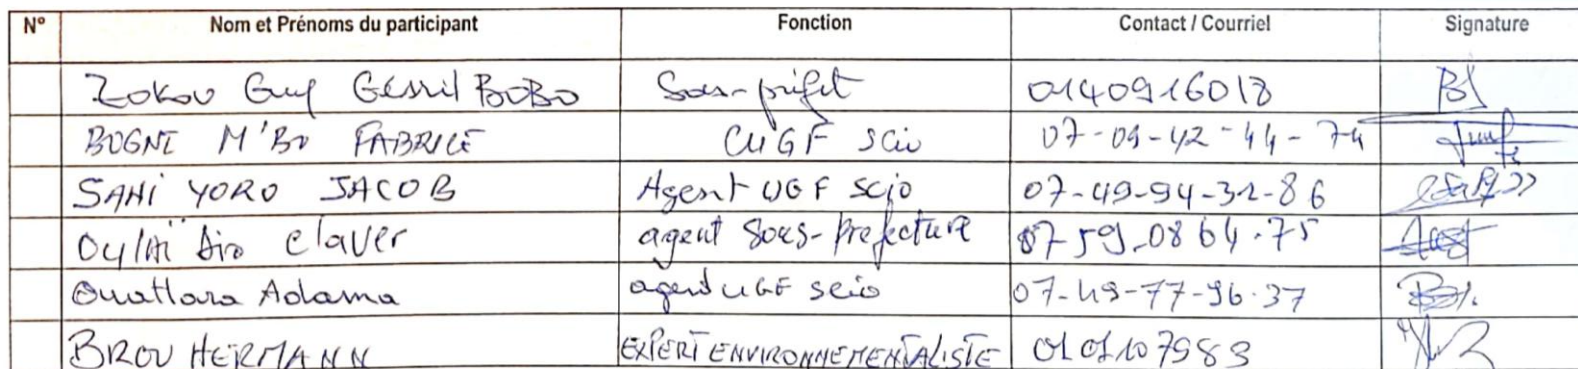 N° Nom et Prénoms du participant Fonction Contact / Courriel Signature
Zokou Guy Gessil BOBO Sous-préfet 0140916018
BOGNI M'BO FABRICE CUGF scio 07-09-42-44-74
SAHI YORO JACOB Agent UGF scio 07-49-94-31-86
Oulaï Claver agent Sous-Prefecture 07 59.08 64.75
Ouattara Adama agent UGF scio 07-49-77-96.37
BROU HERMANN EXPERT ENVIRONNEMENTALISTE 0101107983